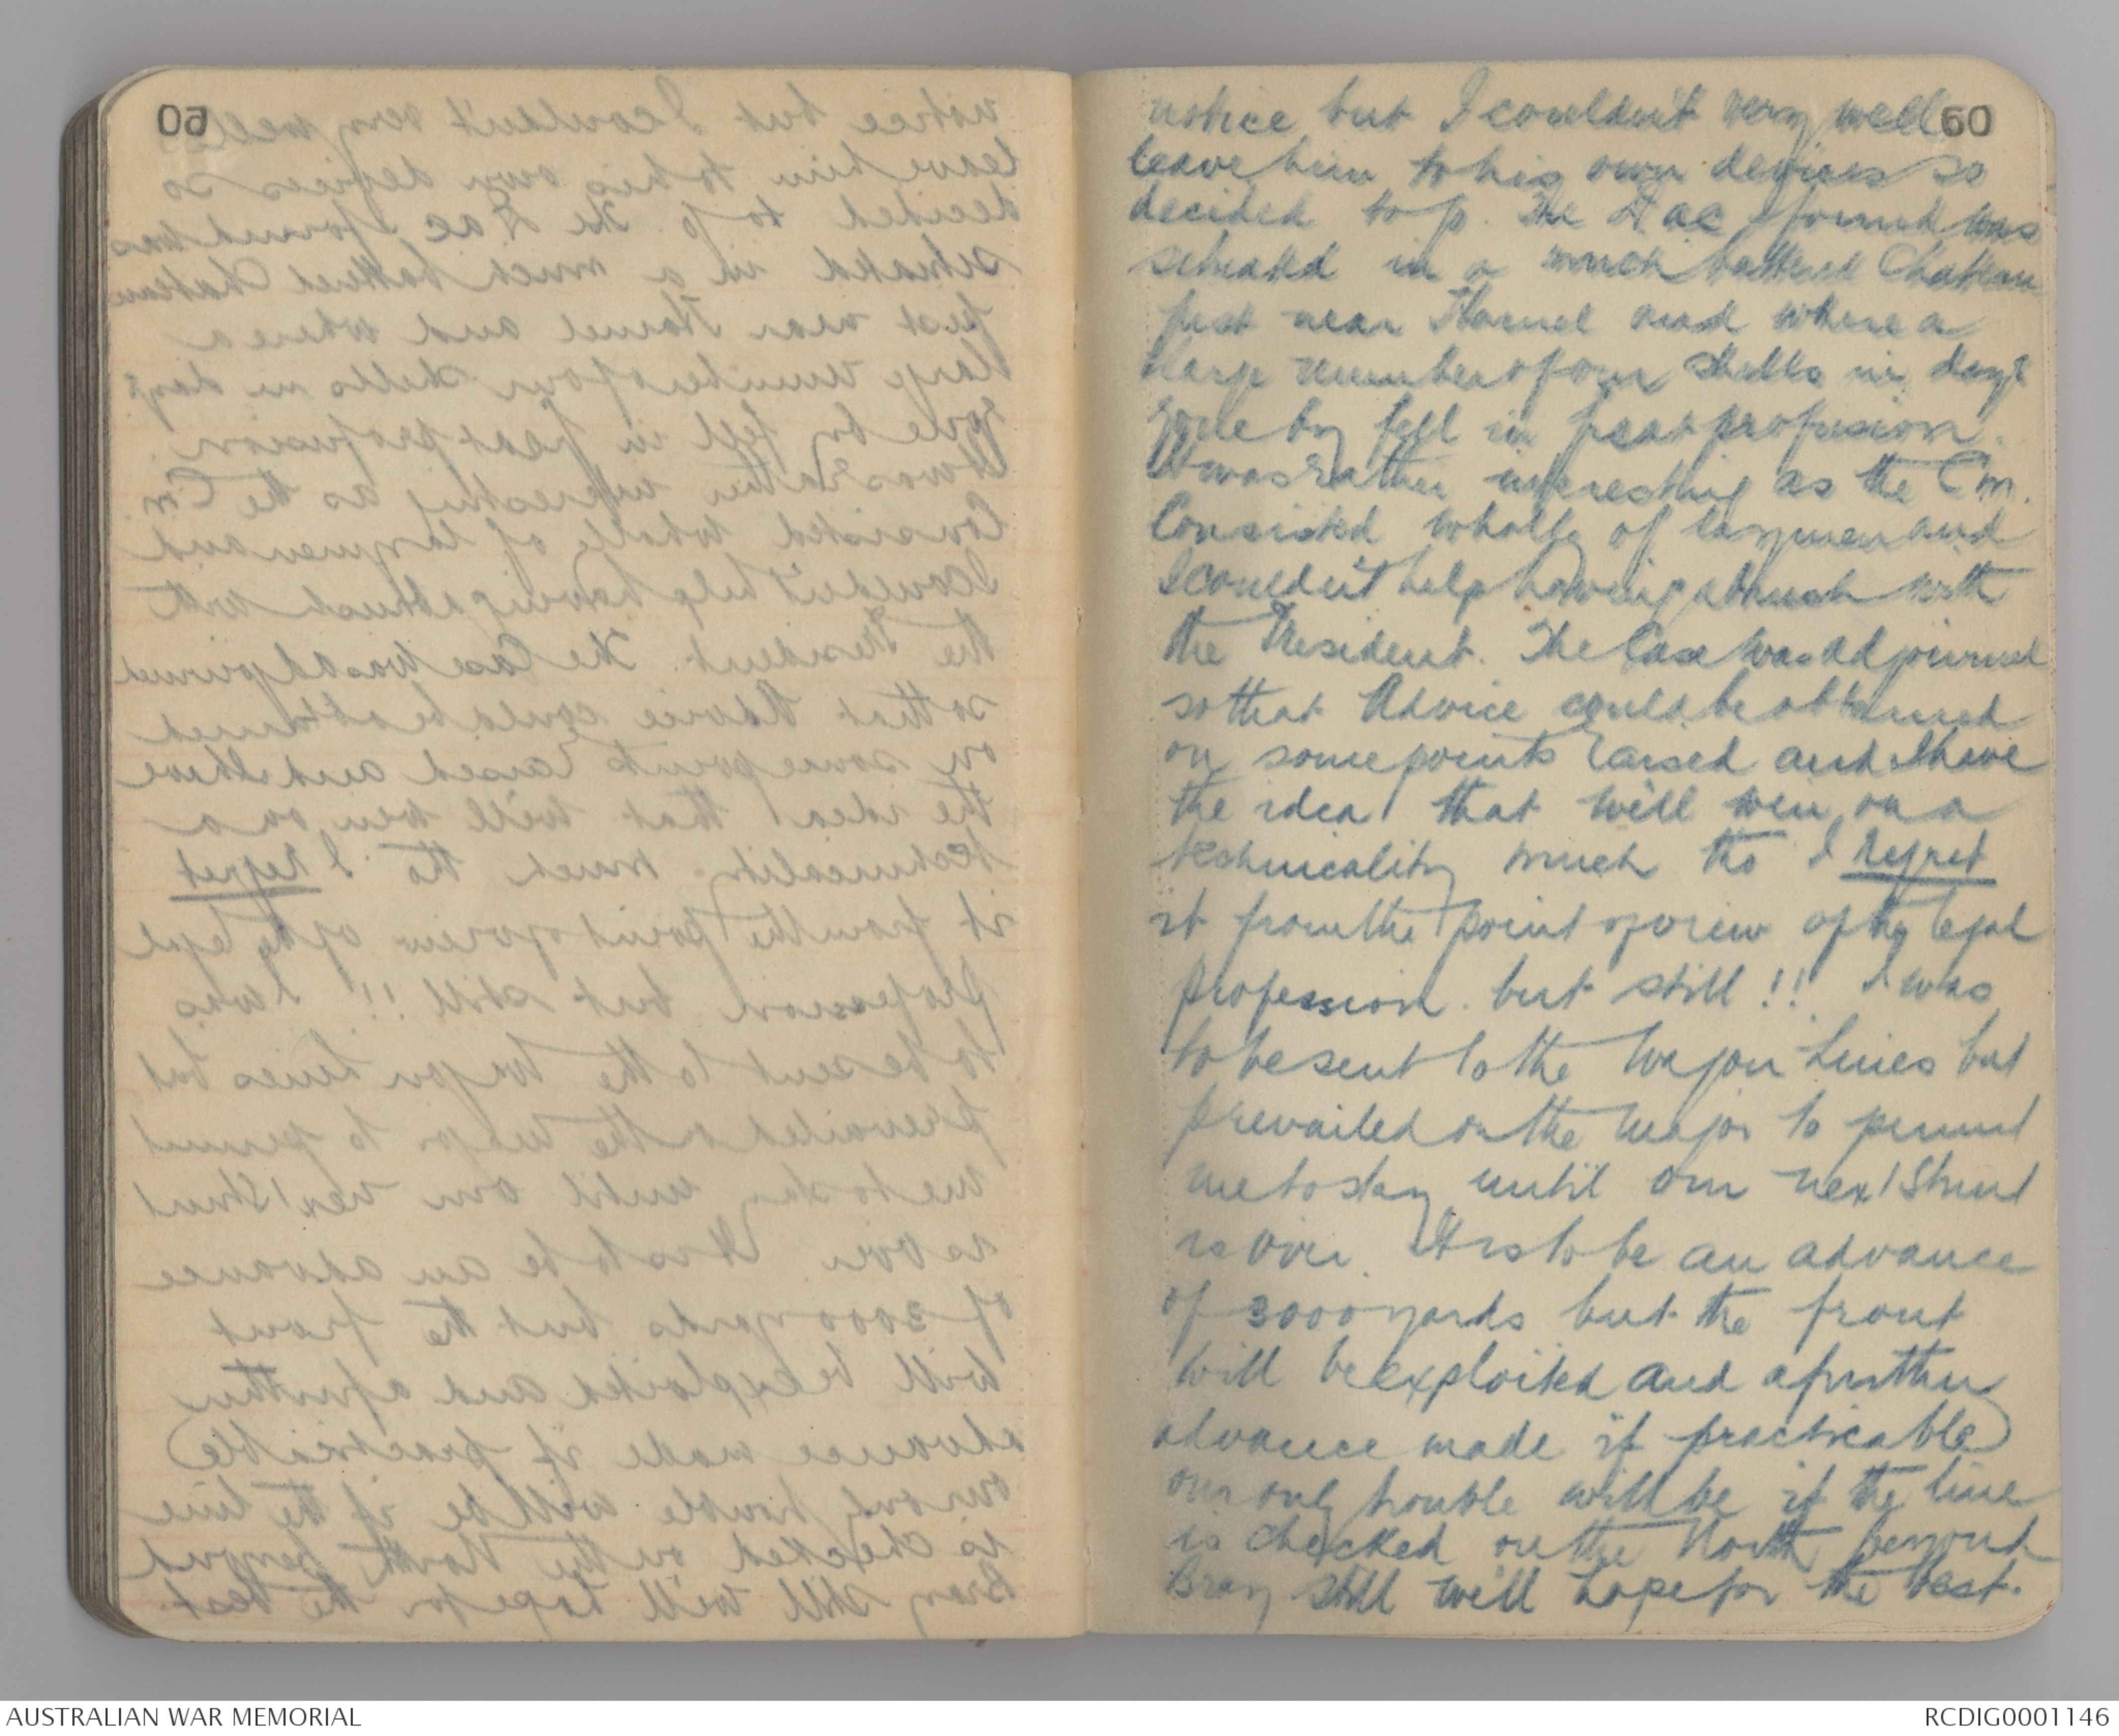 60
notice but I couldn't very well
leave him to his own devices so
decided to go. The DAC I found was
situated in a much battered Chateau
just near Hamel and where a
large number of our shells in days
gone by fell in great profusion.
It was rather interesting as the Cm.
Consisted wholly of laymen and
I couldn't help having a brush with
the President. The Case was adjourned
so that Advice could be obtained
on some points raised and I have
the idea that we'll win on a
technicality much tho I regret
it from the point of view of the legal
profession. but still !! I was
to be sent to the Wagon Lines but
prevailed on the Major to permit
me to stay until our next Stunt
is over. It is to be an advance
of 3000 yards but the front
will be exploited and a further
advance made if practicable
our only trouble will be if the line
is checked on the North beyond
Bray still we'll hope for the best.
AUSTRALIAN WAR MEMORIAL
RCDIG0001146